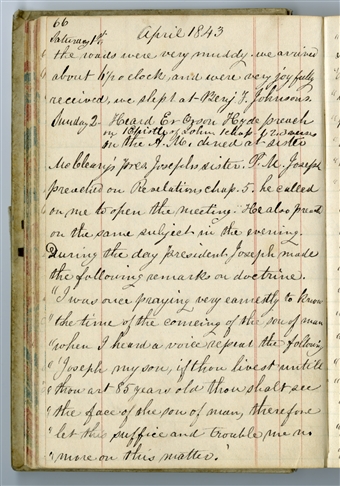 66
April 1843
Saturday 1st
the roads were very muddy. we arrived
about 1 o'clock, and were very joyfully
received, we slept at Benj F. Johnsons
Sunday 2. Heard Er Orson Hyde preach
in 1 Epistle of John 1 chap
in the A. M. dined at sister
McCleary's Prest Joseph's sister. P. M. Joseph
preached on Revelations chap. 5. he called
on me to open the meeting. He also preachd
on the same subject in the evening.
During the day president Joseph made
the following remarks on doctrine.
"I was once praying very earnestly to know
"the time of the coming of the son of man
"when I heard a voice repeat the following
"'Joseph my son, if thou livest untill
"thou art 85 years old thou shalt see
"the face of the son of man, therefore
"let this suffice and trouble me no
"more on this matter.'